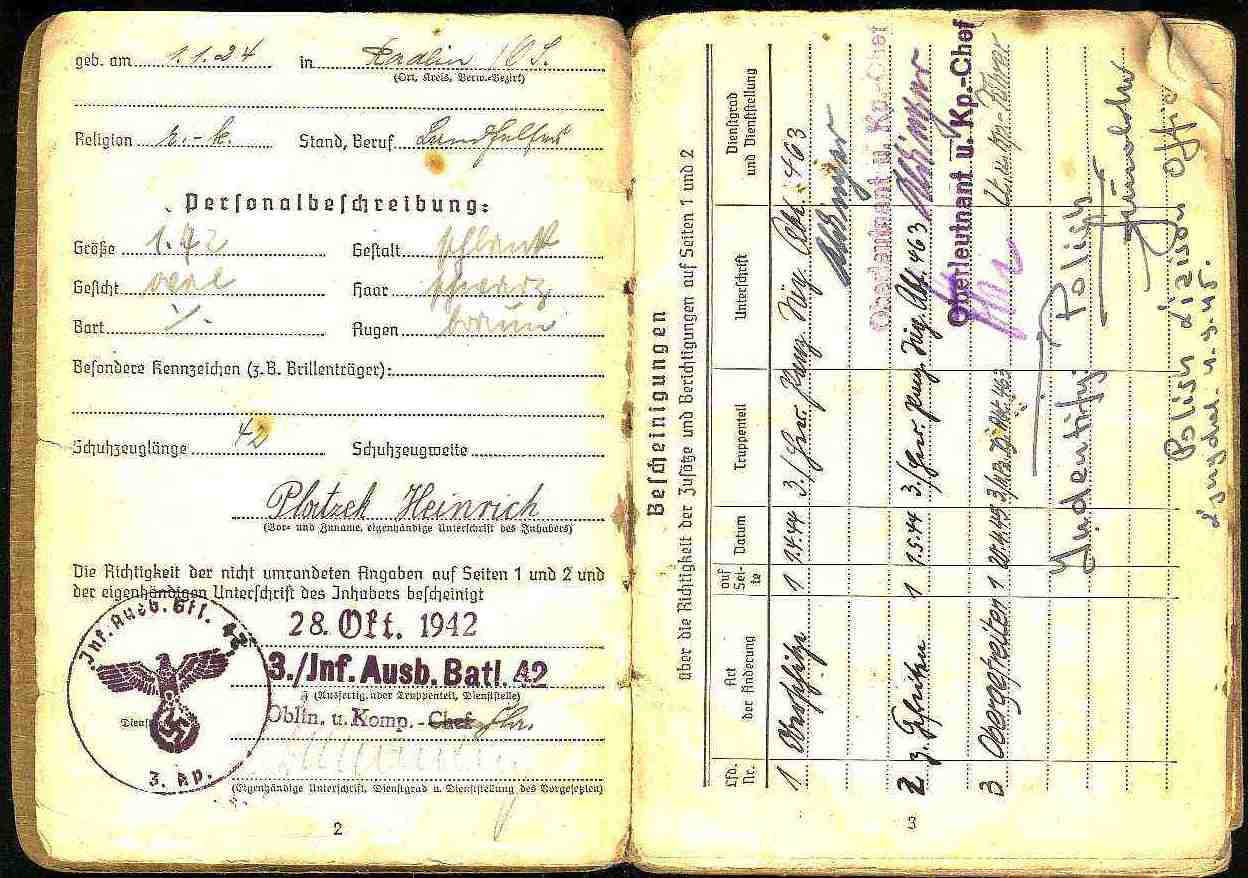 geb. am 1.1.24 in /O.S.
(Ort, Kreis, Verw.-Bezirk)
Religion r.-k. Stand, Beruf Landhelfer
Personalbeschreibung:
Größe 1.72 Gestalt schlank
Gesicht oval Haar schwarz
Bart ./. Augen braun
Besondere Kennzeichen (z.B. Brillenträger):
Schuhzeuglänge 42 Schuhzeugweite
Plortzek Heinrich
(Vor- und Zuname, eigenhändige Unterschrift des Inhabers)
Die Richtigkeit der nicht umrandeten Angaben auf Seiten 1 und 2 und
der eigenhändigen Unterschrift des Inhabers bescheinigt
28. Okt. 1942
3./Inf. Ausb. Batl. 42
(Ausfertig. über Truppenteil, Dienststelle)
Oblln. u. Komp.-Chef
Inf. Ausb. Btl. 42
3. Kp.
(Eigenhändige Unterschrift, Dienstgrad u. Dienststellung des Vorgesetzten)
2
Bescheinigungen
über die Richtigkeit der Zusätze und Berichtigungen auf Seiten 1 und 2
Lfd. Nr. Art der Änderung auf Seite Datum Truppenteil Unterschrift Dienstgrad und Dienststellung
1 Oberschütze 1 1.4.44 3./ Abt. 463
Oberleutnant u. Kp.-Chef
2 z. Gefreiten 1 1.5.44 3./ Abt. 463
Oberleutnant u. Kp.-Chef
3 Obergefreiten 1
Indentitfy: Polish
Polish Liaison Offic
3